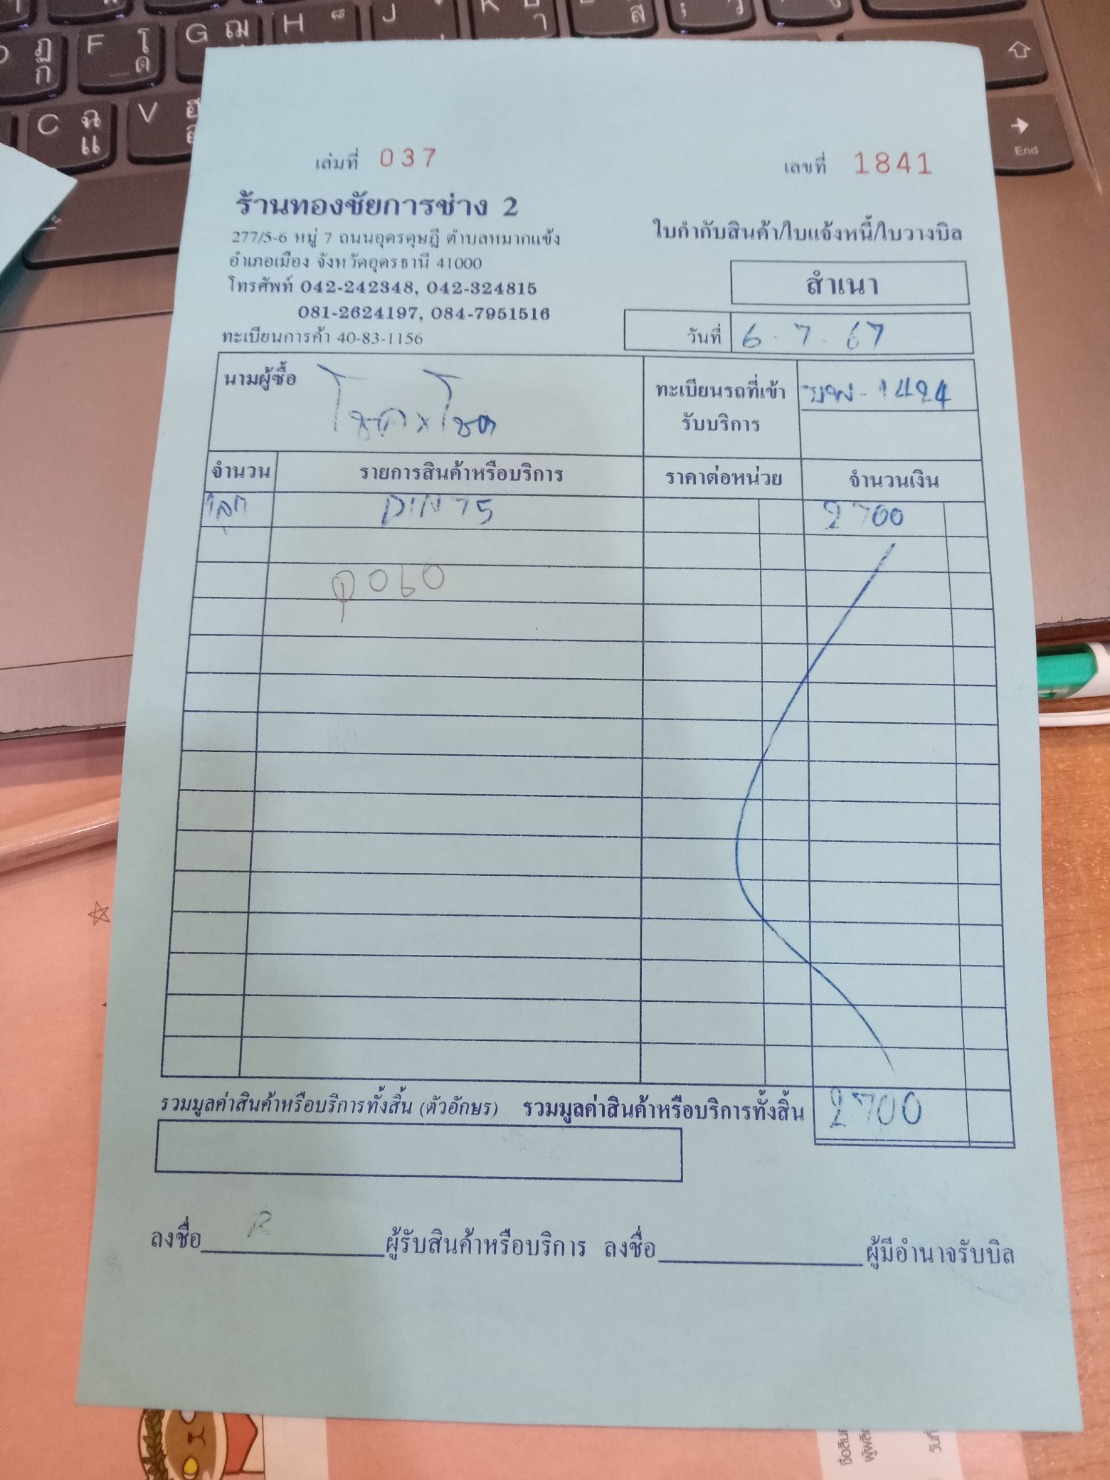 เล่มที่ 037
เลขที่ 1841
ร้านทองชัยการช่าง 2
277/5-6 หมู่ 7 ถนนอุดรดุษฎี ตำบลหมากแข้ง
อำเภอเมือง จังหวัดอุดรธานี 41000
โทรศัพท์ 042-242348, 042-324815
081-2624197, 084-7951516
ทะเบียนการค้า 40-83-1156
ใบกำกับสินค้า/ใบแจ้งหนี้/ใบวางบิล
สำเนา
วันที่ 6-7-67
นามผู้ซื้อ
ทะเบียนรถที่เข้ารับบริการ
จำนวน รายการสินค้าหรือบริการ ราคาต่อหน่วย จำนวนเงิน
1 ลูก DIN 75 2700
รวมมูลค่าสินค้าหรือบริการทั้งสิ้น (ตัวอักษร) รวมมูลค่าสินค้าหรือบริการทั้งสิ้น 2700
ลงชื่อ ผู้รับสินค้าหรือบริการ ลงชื่อ ผู้มีอำนาจรับบิล
End